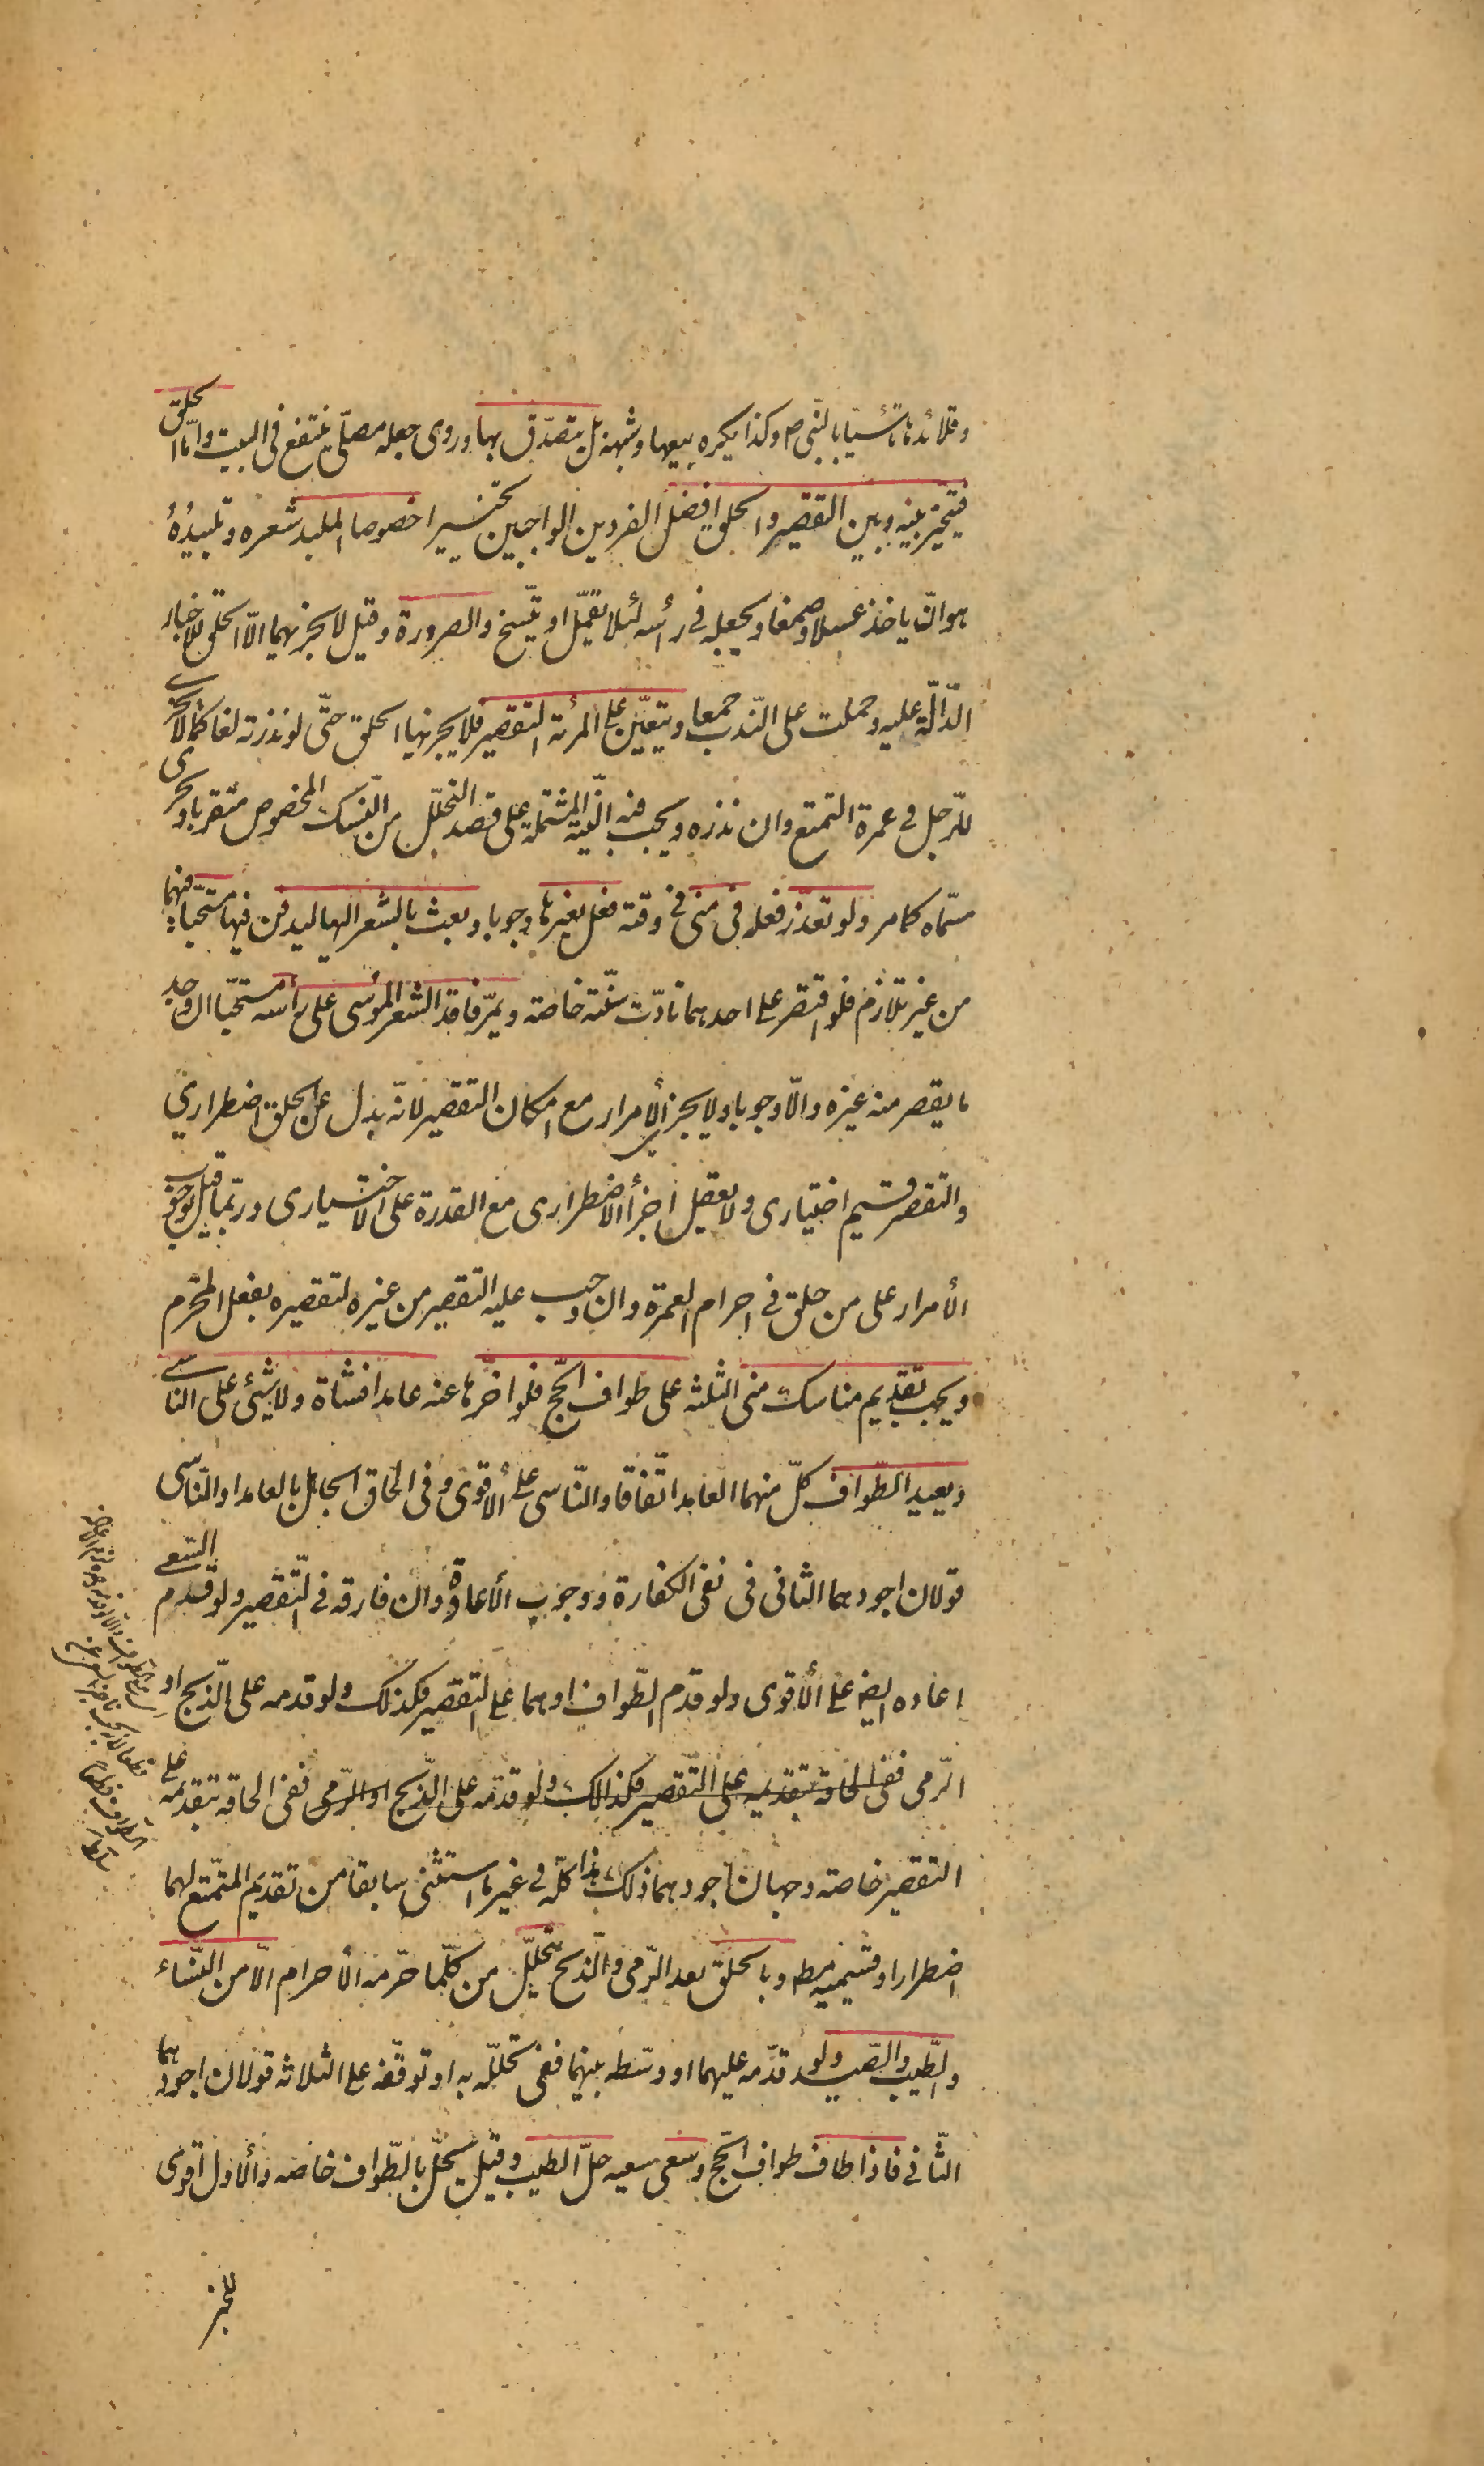 وقلائدها تأسّيا بالنّبي ص وكذا يكره بيعها وشبهه بل يتصدّق بها وروى جعله مصلّى ينتفع فى البيت وامّا الحلق
فيتخيّر بينه وبين التقصير والحلق افضل الفردين الواجبين تخييرا خصوصا الملبد شعره وتلبيدُهُ
هو ان ياخذ عسلا وصمغا ويجعله فى رأسه لئلا يقمّل او يتّسخ والصرورة وقيل لا يجزيهما الاّ الحلق للاخبار
الدّالّة عليه وحملت على النّدب جمعا ويتعيّن على المرئة التقصير فلا يجزيها الحلق حتّى لو نذرته لغا كما لا يجزى
للرّجل فى عمرة التمتع وان نذره ويجب فيه النّية المشتملة على قصد التحلّل من النسك المخصوص متقربا ويجزى
مسّماه كما مر ولو تعذّر فعله فى منى فى وقته فعل بغيرها وجوبا وبعث بالشعر اليها ليدفن فيها مستحبّا فيهما
من غير تلازم فلو اقتصر على احدهما تادّت سنّته خاصّة ويمرّ فاقد الشعر الموسى على رأسه مستحبّا ان وجد
ما يقصر منه غيره والاّ وجوبا ولا يجزى الأمرار مع امكان التقصير لانّه بدل عن الحلق اضطراري
والتقصر قسيم اختيارى ولا يعقل اجزأ الاضطرارى مع القدرة على الاختيارى وربّما قيل بوجوب
الأمرار على من حلق فى احرام العمرة وان وجب عليه التقصير من غيره لتقصيره بفعل المحّرم
ويجب تقديم مناسك منى الثلثه على طواف الحّج فلو اخّرها عنه عامدا فشاة ولا شيئ على الناسى
ويعيد الطّواف كلّ منهما العامد اتّفاقا والنّاسى على الأقوى وفى الحاق الجاهل بالعامد او النّاسى
قولان اجودهما الثانى فى نفى الكفارة ووجوب الأعادة وان فارقه فى التّقصير ولو قدم السّعى
اعاده ايضا على الأقوى ولو قدم الطّواف او هما على التقصير فكذلك ولو قدمه على الّذبح او
الرّمى ففى الحاقه بتقديمه على التّقصير فكذالك ولو قدّمه على الذّبح او الرّمى ففى الحاقه بتقدمه على
التقصير خاصّه وجهان اجودهما ذلك هذا كلّه فى غير ما استثنى سابقا من تقديم المتمّتع لهما
اضطرارا وقسيميه مطه وبالحلق بعد الرّمى والّذبح يتحلّل من كلّما حرّمه الأحرام الاّ من النّساء
والطّيب والصّيد ولو قدّمه عليهما او وسّطه بينهما ففى تحلّله به او توقّفه على الثلاثه قولان اجودهما
الثّانى فاذا طاف طواف الحّج وسعى سعيه حلّ الطيب وقيل يحلّ بالطّواف خاصه والأول اقوى
للخبر